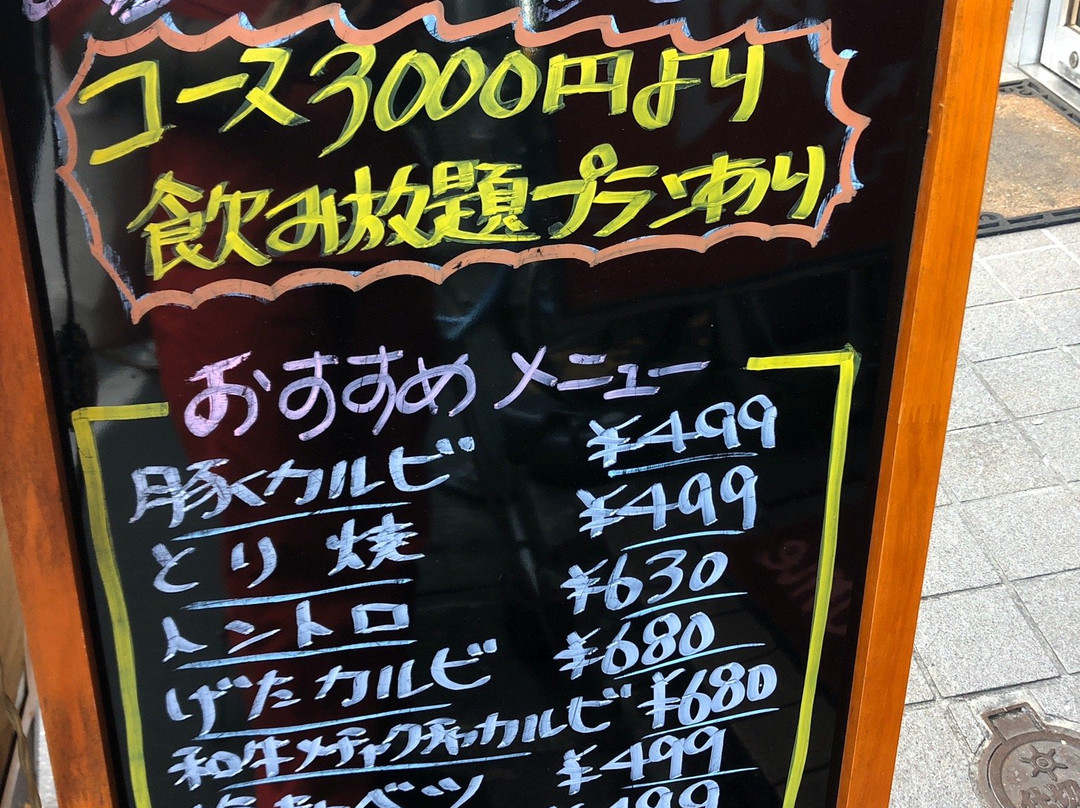 コース3000円より
飲み放題プランあり
おすすめメニュー
豚カルビ ¥499
とり焼 ¥499
トントロ ¥630
げたカルビ ¥680
和牛メチャクチャカルビ ¥680
キャベツ ¥499
499